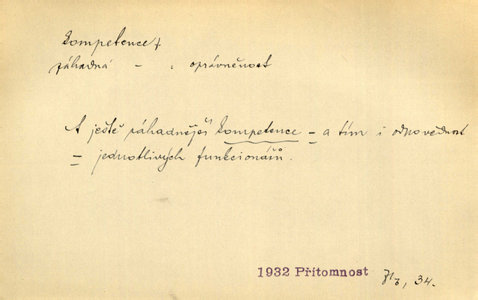 Kompetence
záhadná – : oprávněnost
A ještě záhadnější kompetence = a tím i odpovědnost
= jednotlivých funkcionářů.
1932 Přítomnost
34.